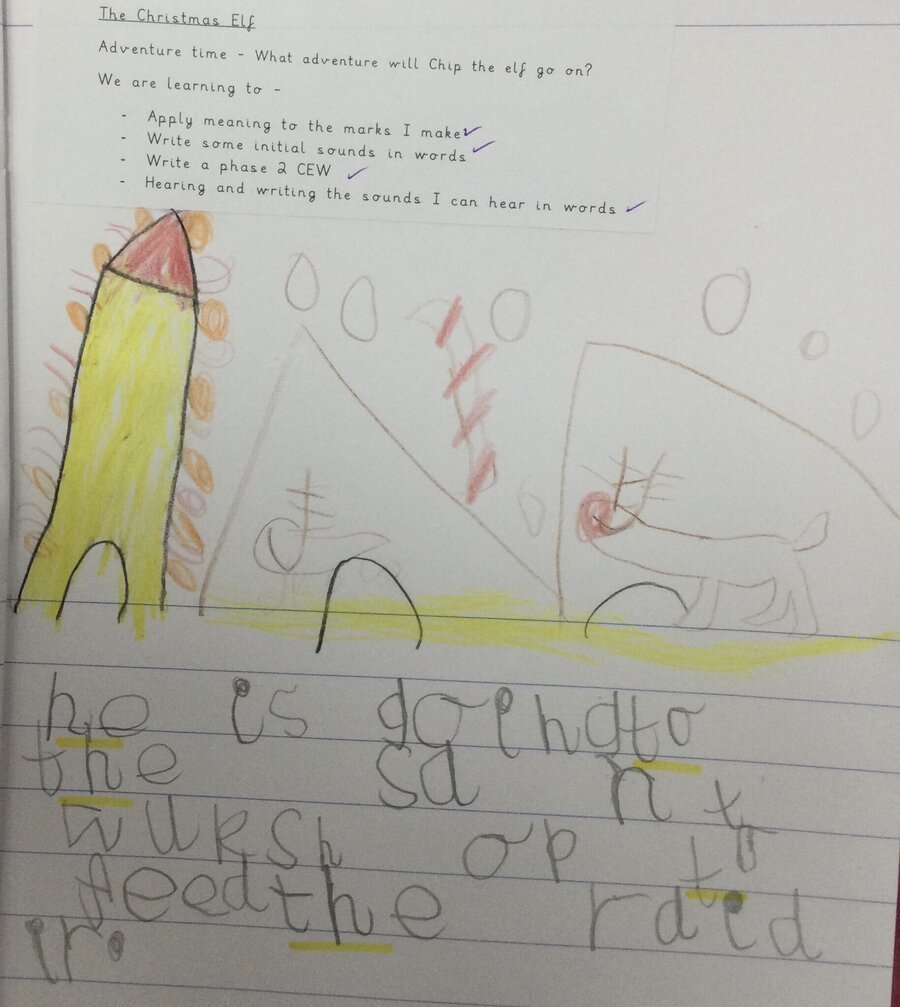 The Christmas Elf
Adventure time - What adventure will Chip the elf go on?
We are learning to -
- Apply meaning to the marks I make
- Write some initial sounds in words
- Write a phase 2 CEW
- Hearing and writing the sounds I can hear in words
he is goingto
the sa n t
wuksh op to
feedthe rdeid
ir.